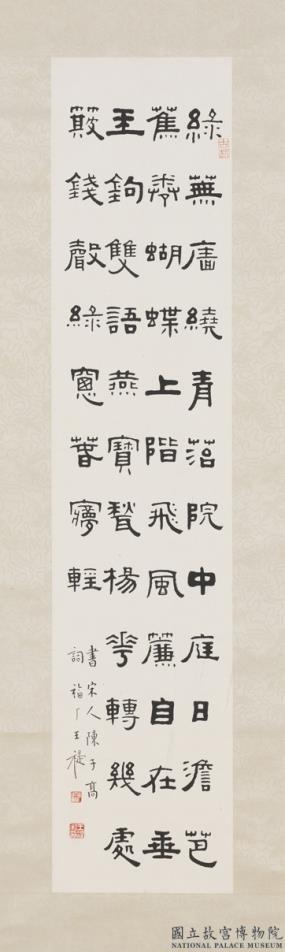 綠蕪廧繞青菭院中庭日澹芭
蕉卷蝴蝶上階飛風簾自在垂
玉鉤雙語燕寶甃楊花轉幾處
簸錢聲綠窗春夢輕
書宋人陳子高
詞 福厂王禔
國立故宮博物院
NATIONAL PALACE MUSEUM